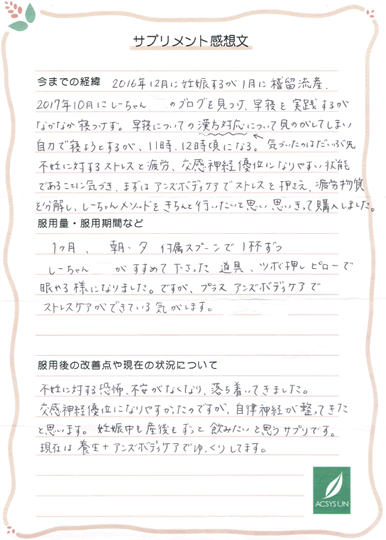 サプリメント感想文
今までの経緯 2016年12月に妊娠するが1月に稽留流産、
2017年10月にしーちゃん のブログを見つけ、早寝を実践するが
なかなか寝つけず。早寝についての漢方対応について見のがしてしまい
自力で寝ようとするが、11時、12時頃になる。気づいたのはだいぶ先
不妊に対するストレスと疲労、交感神経優位になりやすい状態
であることに気づき、まずはアンズボディケアでストレスを押さえ、疲労物質
を分解し、しーちゃんメソッドをきちんと行いたいと思い、思いきって購入しました。
服用量・服用期間など
1ヶ月、 朝・夕 付属スプーンで1杯ずつ
しーちゃん がすすめて下さった 道具、ツボ押しピローで
眠れる様になりました。ですが、プラス アンズボディケアで
ストレスケアができている気がします。
服用後の改善点や現在の状況について
不妊に対する恐怖、不安がなくなり、落ち着いてきました。
交感神経優位になりやすかったのですが、自律神経が整ってきた
と思います。妊娠中も産後もずっと飲みたいと思うサプリです。
現在は養生+アンズボディケアでゆっくりしてます。
ACSYS UN